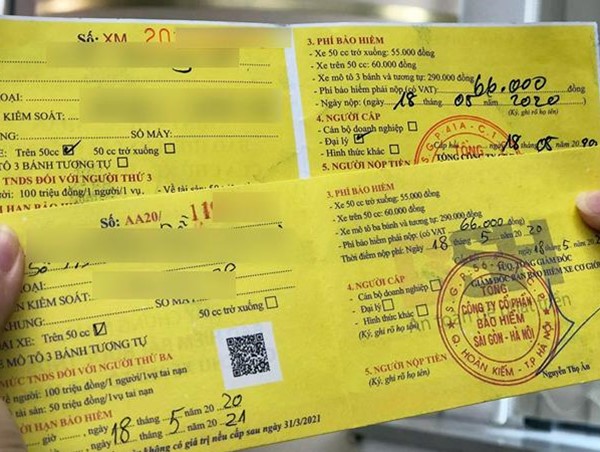 Số: XM 20
OẠI:
KIỂM SOÁT:
NG: SỐ MÁY:
E: Trên 50cc ☑ 50 cc trở xuống ☐
TÔ 3 BÁNH TƯƠNG TỰ ☐
TNDS ĐỐI VỚI NGƯỜI THỨ 3
ười: 100 triệu đồng/1 người/1 vụ. - Về tài sản:
3. PHÍ BẢO HIỂM
- Xe 50 cc trở xuống: 55.000 đồng
- Xe trên 50 cc: 60.000 đồng
- Xe mô tô 3 bánh và tương tự: 290.000 đồng
- Phí bảo hiểm phải nộp (có VAT): 66.000 đồng
- Ngày nộp: (ngày 18 tháng 05 năm 2020
(Ký, ghi rõ họ tên)
4. NGƯỜI CẤP
- Cán bộ doanh nghiệp ☐
- Đại lý ☑
- Hình thức khác ☐
ngày 18 08 năm 20
5. NGƯỜI NỘP TIỀN
Số: AA20/ 119
OẠI:
N KIỂM SOÁT:
KHUNG:
ẠI XE: Trên 50cc ☑ 50 cc trở xuống ☐
MÔ TÔ 3 BÁNH TƯƠNG TỰ
MỨC TNDS ĐỐI VỚI NGƯỜI THỨ BA
người: 100 triệu đồng/1 người/1vụ tai nạn
tài sản: 50 triệu đồng/1vụ tai nạn
ỜI HẠN BẢO HIỂM
giờ , ngày 18 tháng 5 năm 20 20
ngày 18 tháng 5 năm 20 21
không có giá trị nếu cấp sau ngày 31/3/2021
3. PHÍ BẢO HIỂM
- Xe 50 cc trở xuống: 55.000 đồng
- Xe trên 50 cc: 60.000 đồng
- Xe mô tô ba bánh và tương tự: 290.000 đồng
- Phí bảo hiểm phải nộp: (có VAT 66.000 đồng)
Thời điểm nộp phí: Ngày 18 tháng 5 năm 20 20
ngày 18 tháng 5 năm 20
4. NGƯỜI CẤP
- Cán bộ doanh nghiệp ☐
- Đại lý ☐
- Hình thức khác ☐
(Ký, ghi rõ họ tên)
TUQ. TỔNG GIÁM ĐỐC
GIÁM ĐỐC BAN BẢO HIỂM XE CƠ GIỚI
TỔNG
CÔNG TY CỔ PHẦN
BẢO HIỂM
SÀI GÒN - HÀ NỘI
Q. HOÀN KIẾM - T.P HÀ NỘI
5. NGƯỜI NỘP TIỀN
(Ký, ghi rõ họ tên)
Nguyễn Thọ Ấn